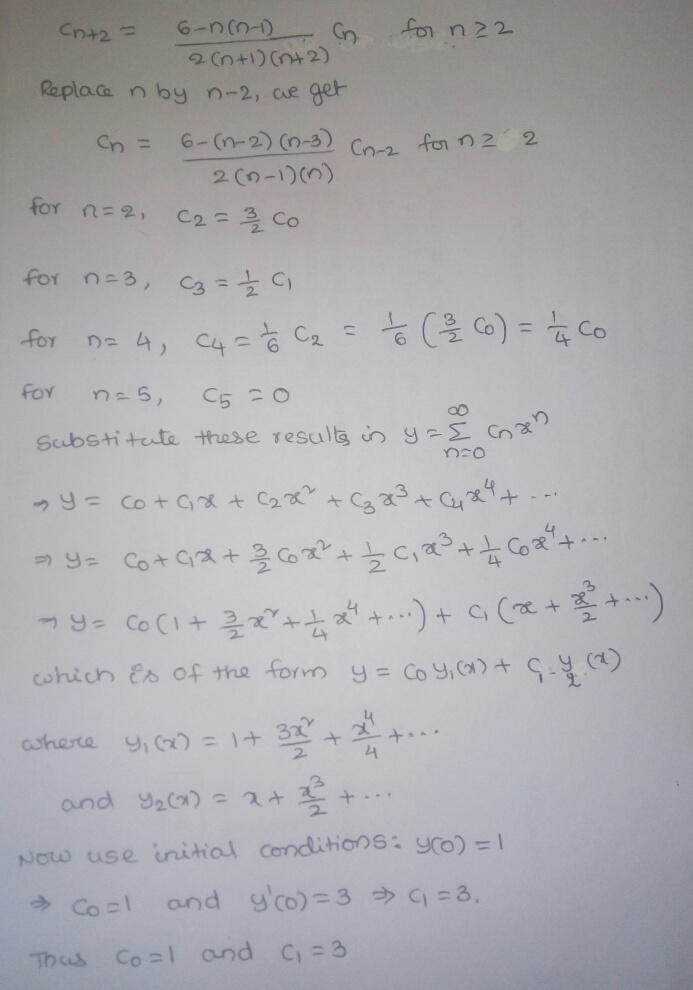 Cn+2 = 6-n(n-1) / 2(n+1)(n+2) Cn for n ≥ 2
Replace n by n-2, we get
Cn = 6-(n-2)(n-3) / 2(n-1)(n) Cn-2 for n ≥ 2
for n=2, C2 = 3/2 C0
for n=3, C3 = 1/2 C1
for n=4, C4 = 1/6 C2 = 1/6 (3/2 C0) = 1/4 C0
for n=5, C5 = 0
Substitute these results in y = ∑_{n=0}^{∞} Cn x^n
⇒ y = C0 + C1x + C2x² + C3x³ + C4x⁴ + ...
⇒ y = C0 + C1x + 3/2 C0x² + 1/2 C1x³ + 1/4 C0x⁴ + ...
⇒ y = C0(1 + 3/2 x² + 1/4 x⁴ + ...) + C1(x + x³/2 + ...)
which is of the form y = C0 y1(x) + C1 y2(x)
where y1(x) = 1 + 3x²/2 + x⁴/4 + ...
and y2(x) = x + x³/2 + ...
Now use initial conditions: y(0) = 1
⇒ C0 = 1 and y'(0) = 3 ⇒ C1 = 3.
Thus C0 = 1 and C1 = 3